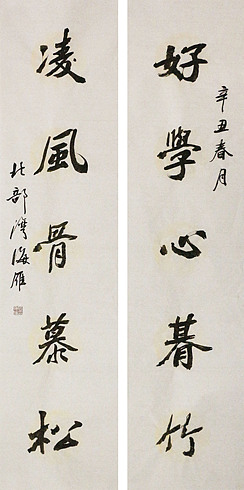 好學心暮竹
辛丑春月
凌風骨慕松
北部灣海雁